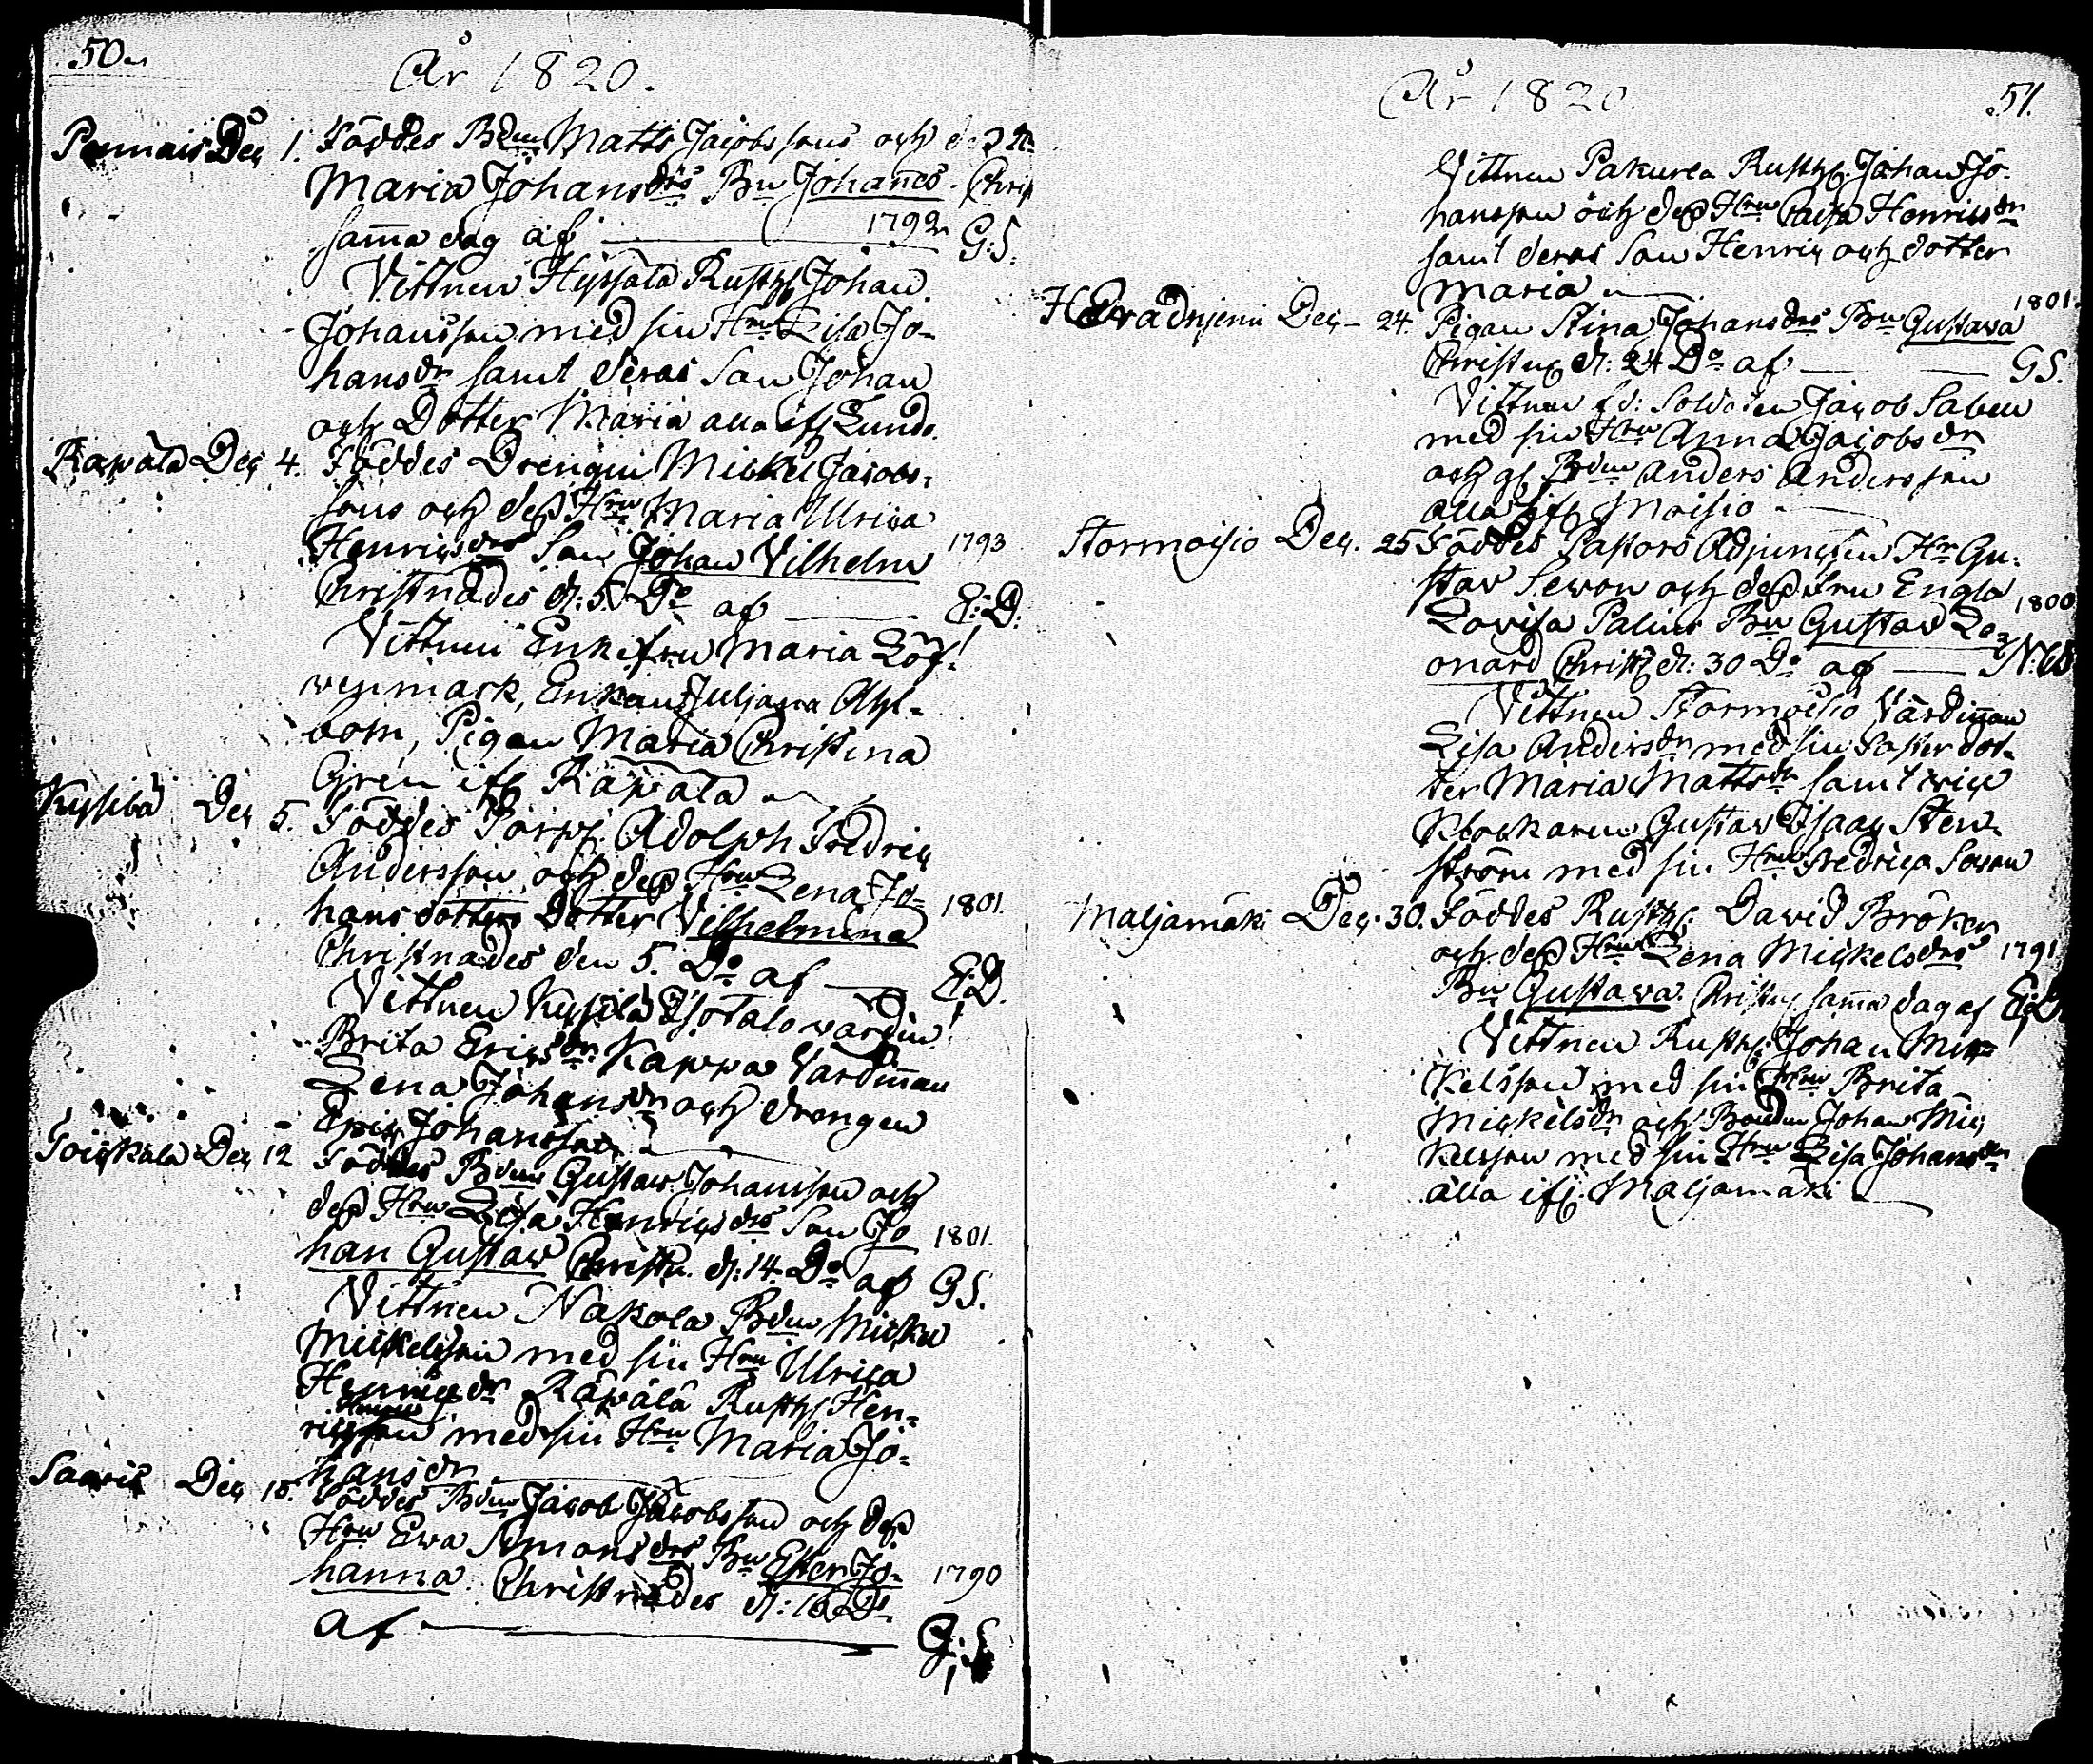 50.
År 1820.
Dec 1. Föddes Bdn Matts Jacobssons och
Maria Johansdrs Bn Johannes. Christ
samma dag af — 1792 G:S.
Vittnen Hyssälä Rusth Johan
Johansson med sin Hru Lisa Jo-
hansdr samt deras Son Johan
och Dotter Maria alla ifr Lunde.
Räpälä Dec 4. Föddes Drengen Mickel Jacobs-
sons och dess Hru Maria Ulrica
Henricsdrs Son Johan Vilhelm 1793
Christnades d: 5. Do af — E:D:
Vittnen Enkefru Maria Löf-
venmark, Enkan Juliana Ahl-
bom, Pigan Maria Christina
Gren ifr Räpälä
Kyssilä Dec 5. Föddes Torp. Adolph Fredric
Andersson och dess Hru Lena Jo-
hansdotters Dotter Vilhelmina 1801.
Christnades den 5. Do af — E:D.
Vittnen Kyssilä Isotalo värdin
Brita Ericsdr Kappa Värdinnan
Lena Johansdr och drengen
Eric Johansson
Toickala Dec 12 Föddes Bdn Gustaw Johansson och
dess Hru Lisa Henricsdrs Son Jo- 1801.
han Gustaw Christn. d: 14 Do af GS.
Vittnen Nakola Bdn Mickel
Mickelsson med sin Hru Ulrica
Henricsdr Räpälä Rusth Hen-
ricsson med sin Hru Maria Jo-
hansdr
Saaris Dec 15. Föddes Bdn Jacob Jacobsson och dess
Hru Ewa Simonsdrs Bn Ester Jo- 1790
hanna. Christnades d: 16 Do
af — G:S
År 1820. 51.
Vittnen Pakurla Rusth. Johan Jo-
hansson och dess Hru Caisa Henricsdr
samt deras Son Henric och dotter
Maria
Dec 24. Pigan Stina Johansdrs Bn Gustava 1801.
Christn d: 24 Do af — GS.
Vittnen fd: Soldaten Jacob Salen
med sin Hru Anna Jacobsdr
och gl Bdn Anders Andersson
alla ifr Moisio
Stormoisio Dec. 25 Föddes Pastors Adjuncten Hr Gu-
stav Sewon och dess fru Engla 1800
Lovisa Palins Bn Gustav Le-
onard Christ d: 30 Do af —
Vittnen Stormoisio Värdinnan
Lisa Andersdr med sin Faster dot-
ter Maria Mattsdr samt
Klockaren Gustav Isaac Sten-
ström med sin Hru Fredrica
Maljamäki Dec. 30. Föddes Rusth. David Bröker
och dess Hru Lena Mickelsdrs 1791
Bn Gustava. Christn samma dag af E:D
Vittnen Rusth: Johan Mic-
kelsson med sin Hru Brita
Mickelsdr och Bonden Johan Mic
kelsson med sin Hru Lisa Johansdr
alla ifr: Maljamäki